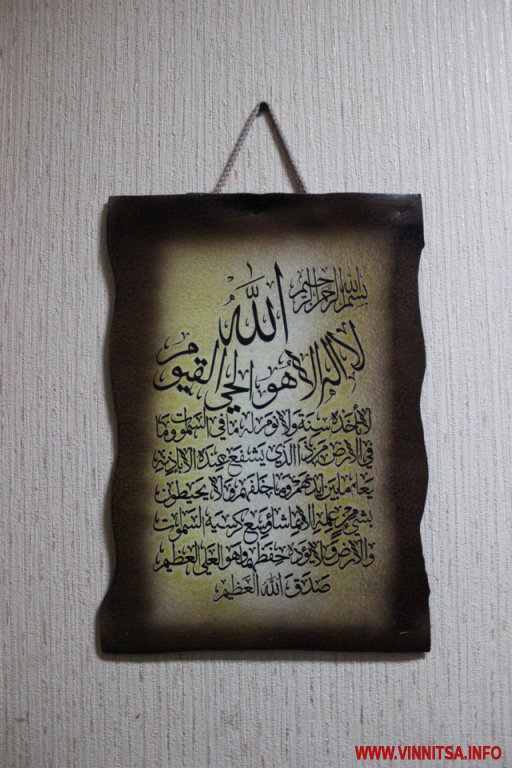 بسم الله الرحمن الرحيم
الله
لا اله الا هو الحي القيوم
لا تأخذه سنة ولا نوم له ما في السموات وما
في الارض من ذا الذي يشفع عنده الا باذنه
يعلم ما بين ايديهم وما خلفهم ولا يحيطون
بشيء من علمه الا بما شاء وسع كرسيه السموات
والارض ولا يؤده حفظهما وهو العلي العظيم
صدق الله العظيم
WWW.VINNITSA.INFO